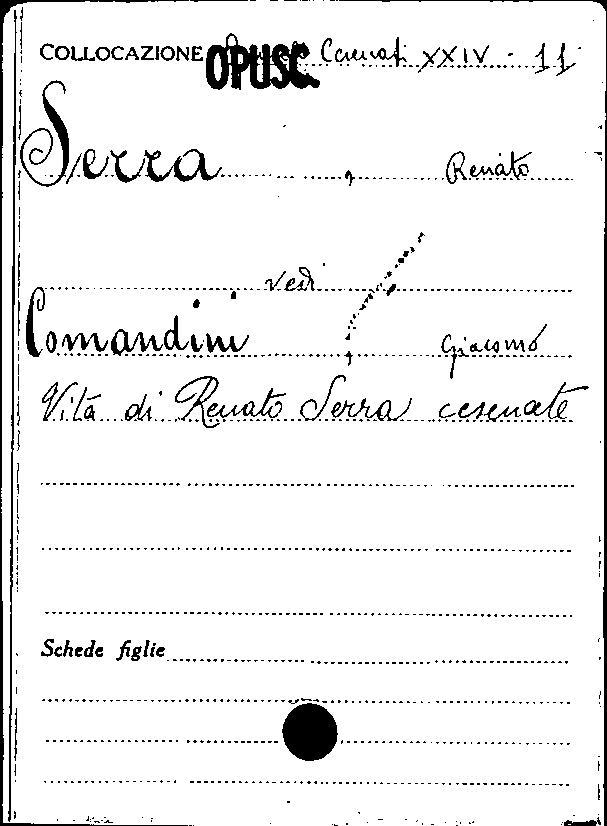 COLLOCAZIONE OPUSC. XXIV - 11
Serra , Renato
vedi
Comandini , Giacomo
Vita di Renato Serra cesenate
Schede figlie